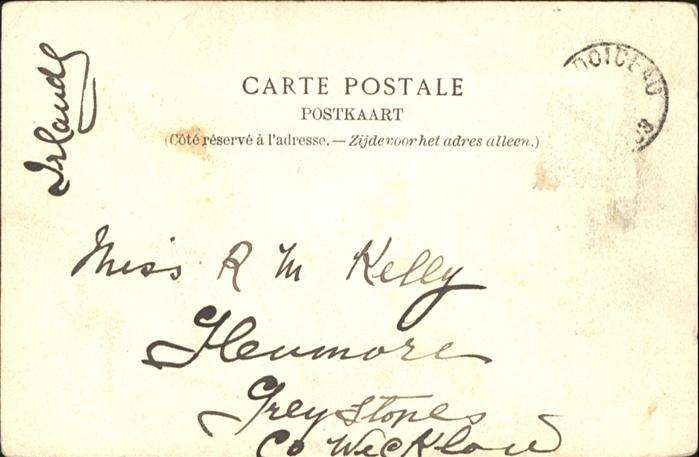 Irlande
CARTE POSTALE
POSTKAART
(Côté réservé à l'adresse. — Zijde voor het adres alleen.)
DOICEAU
Miss R M Kelly
Glenmore
Greystones
Co Wicklow